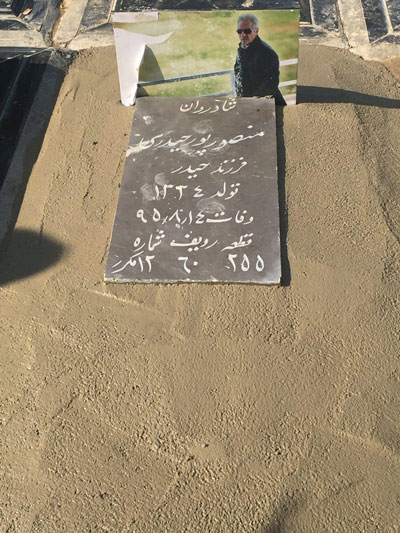 شادروان
منصور پورحیدری
فرزند حیدر
تولد ۱۳۲۴
وفات ۹۵٫۸٫۱۴
قطعه ردیف شماره
۲۵۵ ۶۰ ۱۲مکرر